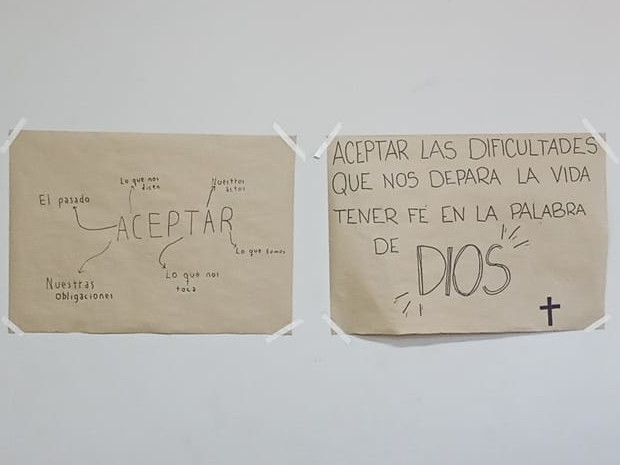 Lo que nos
dicen
Nuestros
actos
El pasado
ACEPTAR
Lo que somos
Lo que nos
toca
Nuestras
obligaciones
ACEPTAR LAS DIFICULTADES
QUE NOS DEPARA LA VIDA
TENER FÉ EN LA PALABRA
DE DIOS